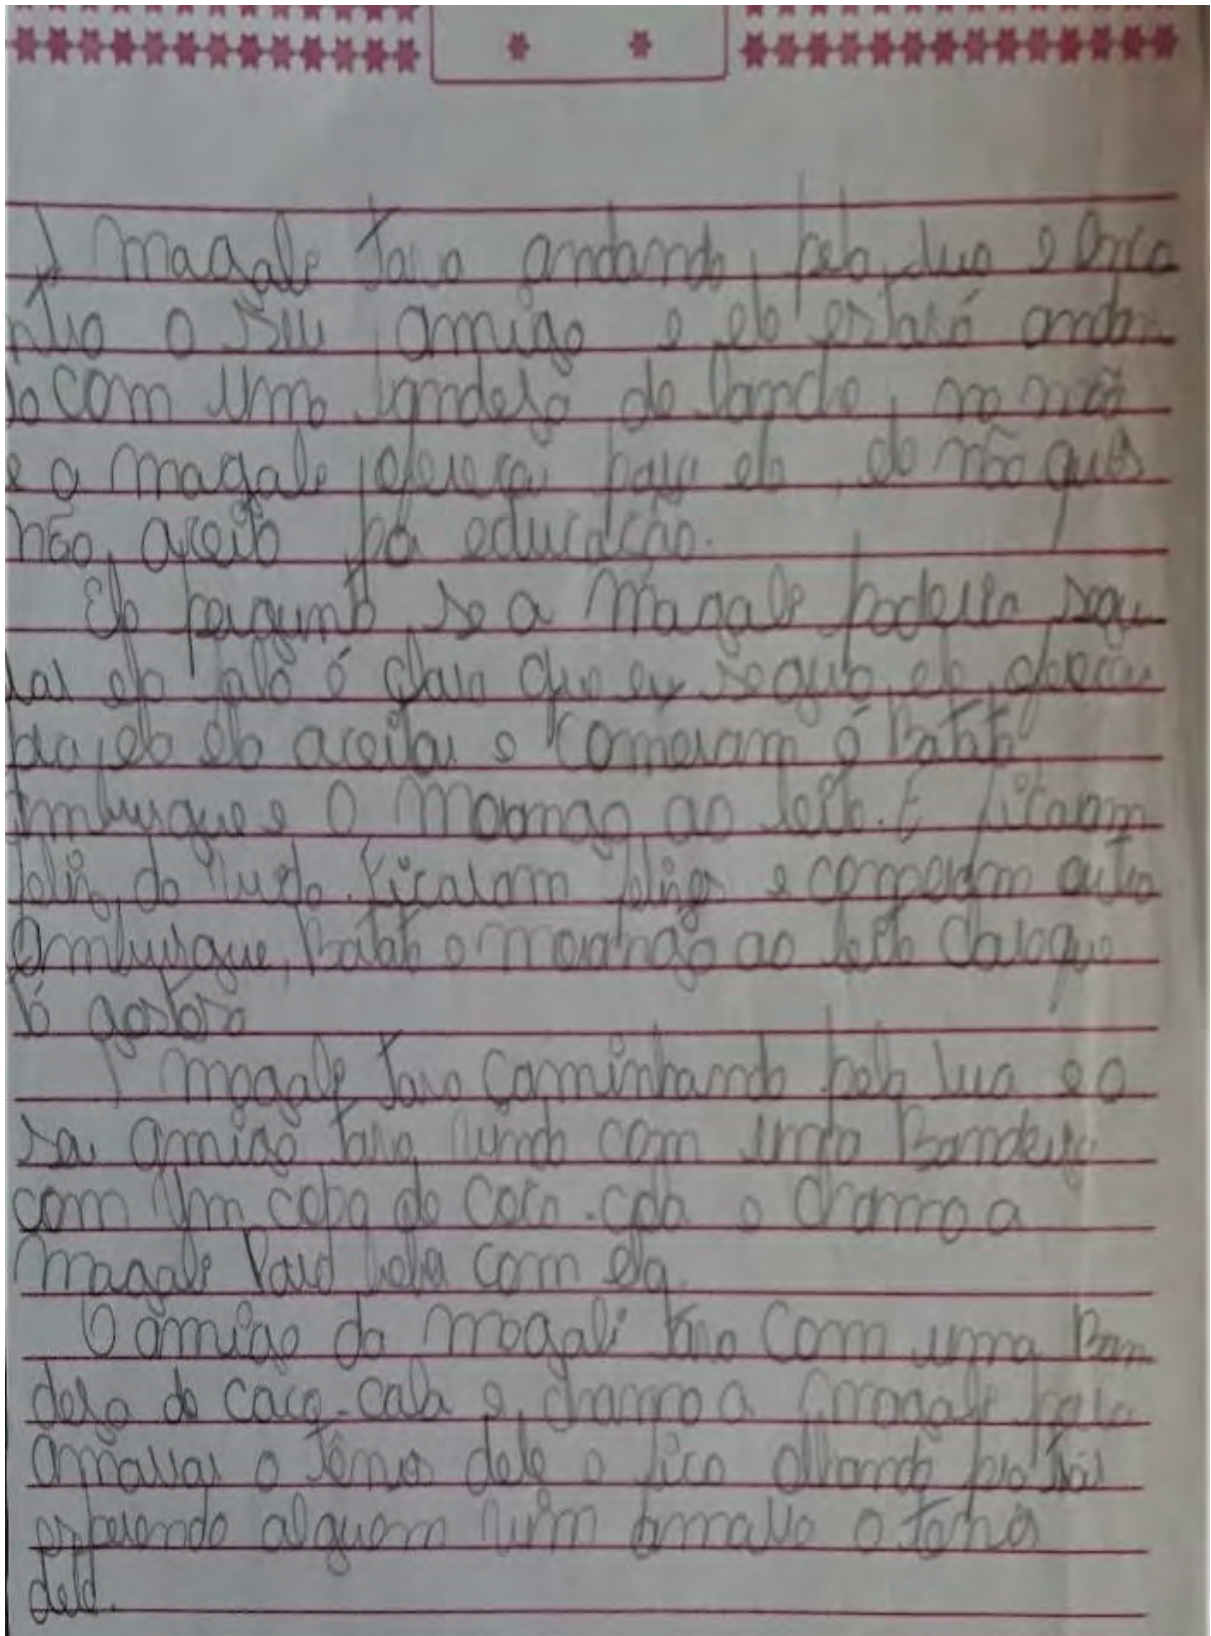 A magale tava andando pela rua e enco
ntro o seu amigo e ele estava andan
do com uma bandeja de lanche, na mão
e a magale ofereceu para ele, ele não quis
não, aceito por educação.
Ele pergunto se a Magale poderia segu
rar ele falo é claro que eu seguro, ele ofereceu
ela aceitar e comeram o Batata
embugue e o morango ao leite. E ficaram
feliz do Ficaram felizes e comperam outro
embugue, Batata e morango ao leite Claro que
tá gostoso
A magale tava caminhando pela rua e o
seu amigo tava vindo com uma Bandeija
com um copo de coca-cola e chamo a
Magale Para beber com ela.
O amigo da magali tava com uma Ban
deja de coca-cola e chamo a magale para
amarrar o tênis dele e fico olhando pra trás
esperando alguem vim amarra o tenis
dele.